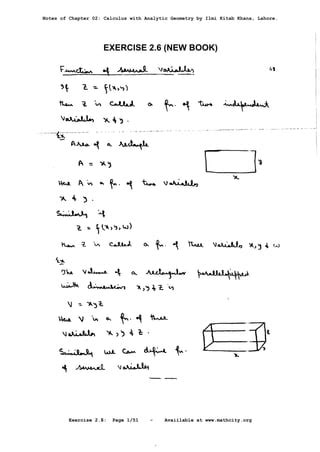 Notes of Chapter 02: Calculus with Analytic Geometry by Ilmi Kitab Khana, Lahore.
EXERCISE 2.6 (NEW BOOK)
Function of several Variables
If z = f(x,y)
then z is called a fn. of two independent
Variables x & y.
Ex
Area of a rectangle
A = xy
y
x
Here A is a fn. of two variables
x & y.
Similarly if
z = f(x,y,w)
then z is called a fn. of Three Variables x,y & w
Ex
The Volume of a rectangular parallelepiped
with dimensions x,y & z is
V = xyz
Here V is a fn. of three
Variables x,y & z.
z
y
x
Similarly we can define fn.
of several variables
Exercise 2.6: Page 1/51 - Available at www.mathcity.org